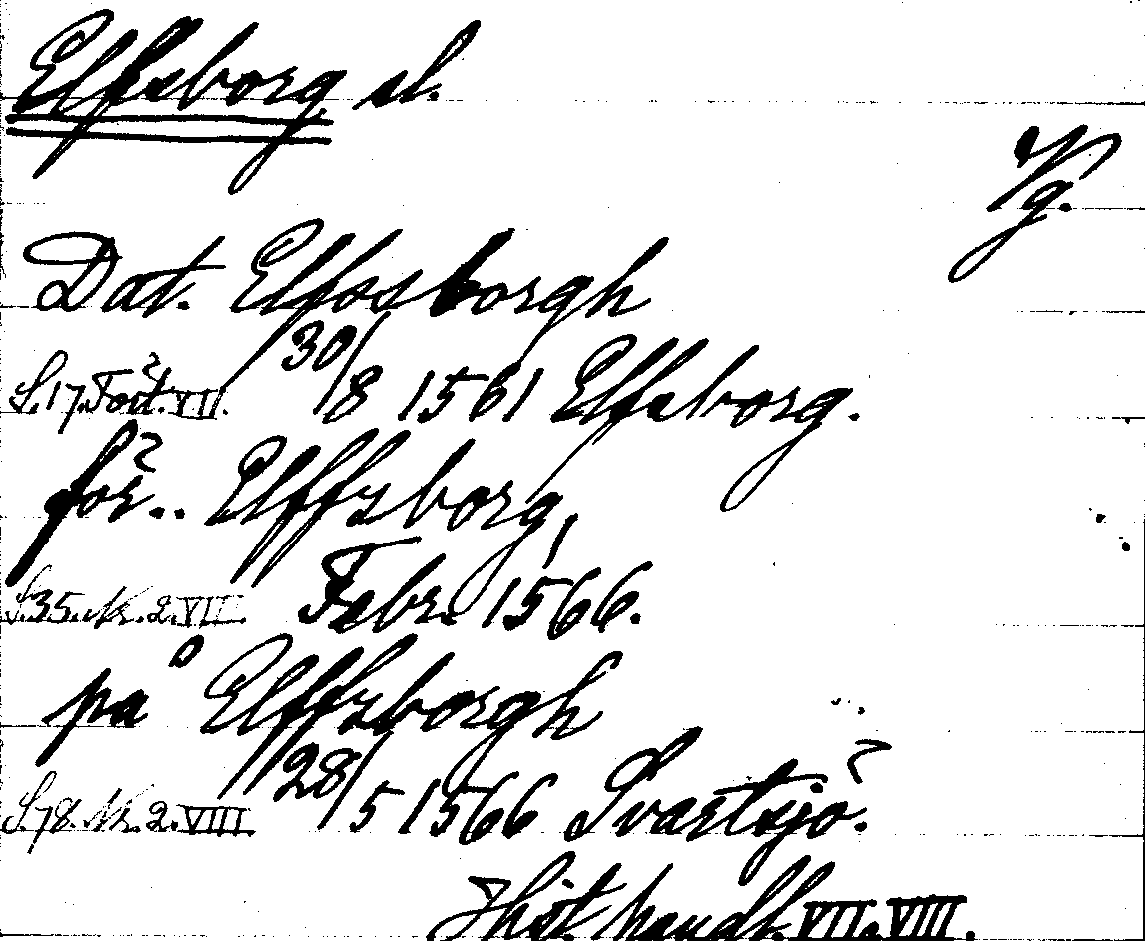 Elfsborg sl.
Vg.
Dat. Elfosborgh
30/8 1561 Elfsborg.
S.17. Fört. VII.
för.. Elffzborg,
S.35. Nr. 2. VII. Febr. 1566.
på Elffzborgh
28/5 1566 Svartsjö.
S.78. Nr. 2. VIII.
Hist. handl. VII. VIII.